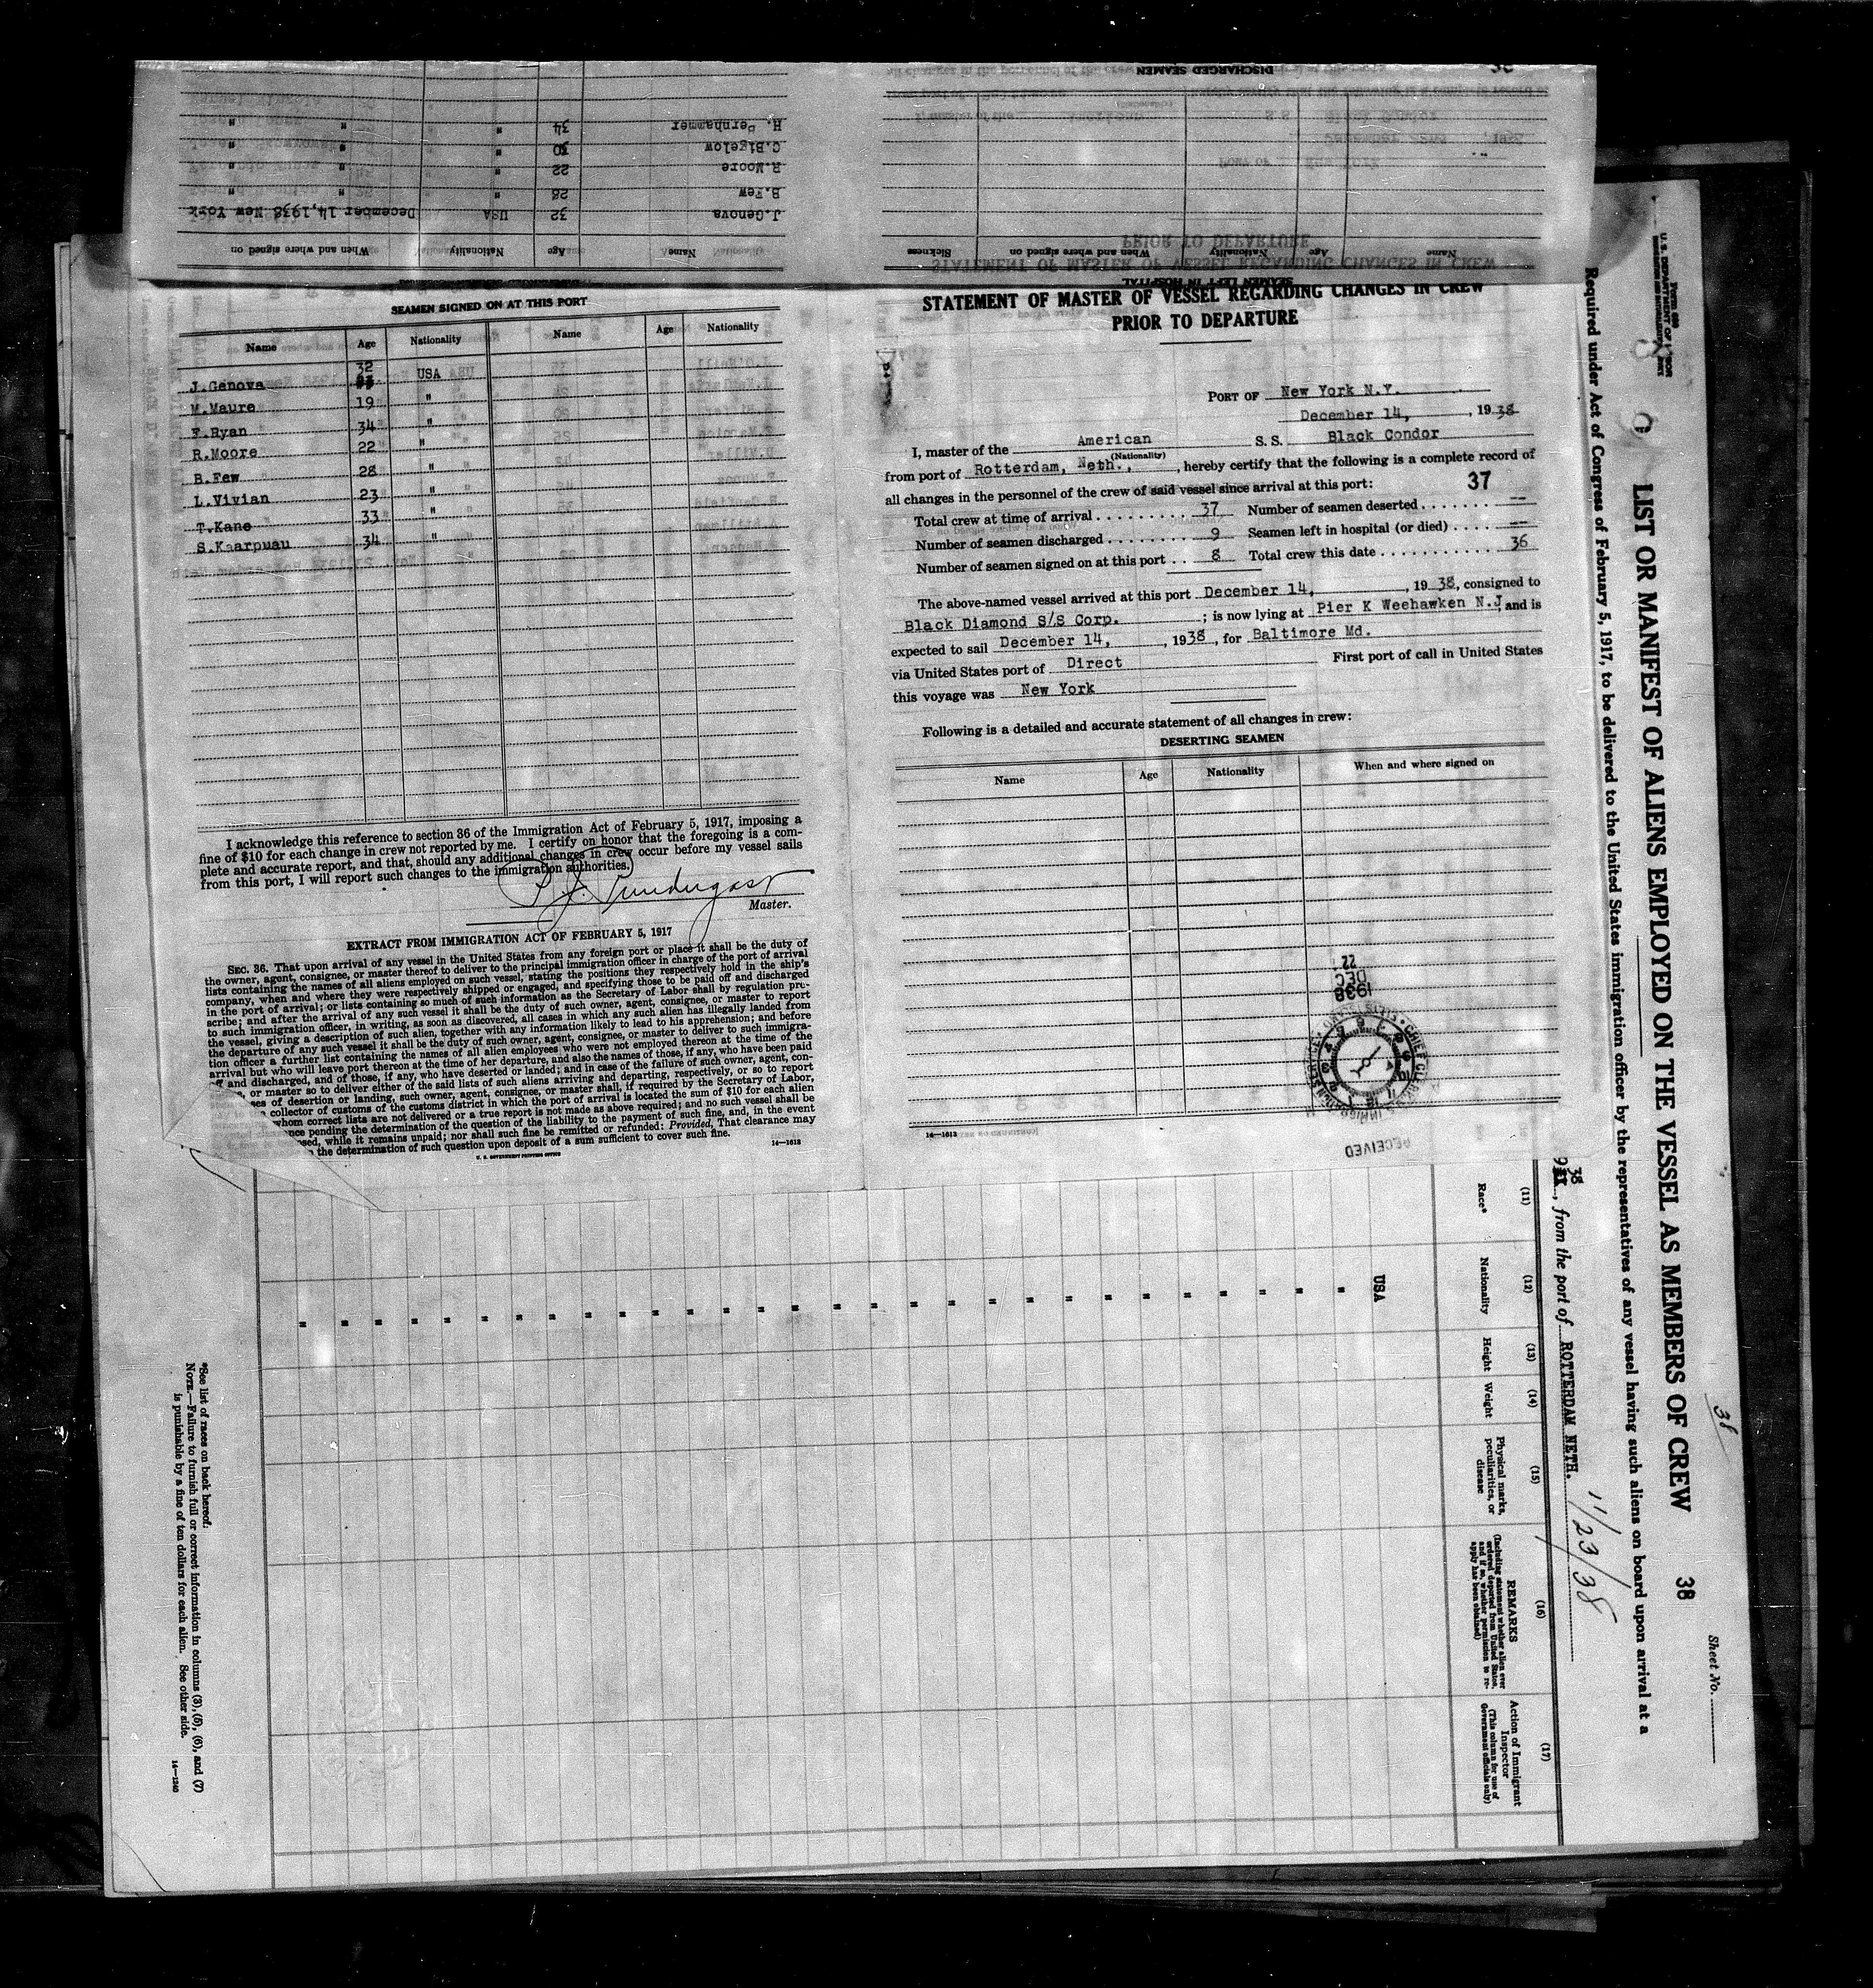 DISCHARGED SEAMEN
H. Bernhammer 34 " "
C.Bigelow 30 " "
R.Moore 22 " "
B.Few 28 " "
J.Genova 32 USA December 14,1938 New York
Name Age Nationality When and where signed on
Name Age Nationality When and where signed on Sickness
SEAMEN LEFT IN HOSPITAL
SEAMEN SIGNED ON AT THIS PORT
Name Age Nationality Name Age Nationality
J.Genova 32 USA
M.Maure 19 "
F.Ryan 34 "
R.Moore 22 "
B.Few 28 "
L.Vivian 23 "
T.Kane 33 "
S.Kaarpuau 34 "
I acknowledge this reference to section 36 of the Immigration Act of February 5, 1917, imposing a
fine of $10 for each change in crew not reported by me. I certify on honor that the foregoing is a com-
plete and accurate report, and that, should any additional changes in crew occur before my vessel sails
from this port, I will report such changes to the immigration authorities.
Master.
EXTRACT FROM IMMIGRATION ACT OF FEBRUARY 5, 1917
SEC. 36. That upon arrival of any vessel in the United States from any foreign port or place it shall be the duty of
the owner, agent, consignee, or master thereof to deliver to the principal immigration officer in charge of the port of arrival
lists containing the names of all aliens employed on such vessel, stating the positions they respectively hold in the ship's
company, when and where they were respectively shipped or engaged, and specifying those to be paid off and discharged
in the port of arrival; or lists containing so much of such information as the Secretary of Labor shall by regulation pre-
scribe; and after the arrival of any such vessel it shall be the duty of such owner, agent, consignee, or master to report
to such immigration officer, in writing, as soon as discovered, all cases in which any such alien has illegally landed from
the vessel, giving a description of such alien, together with any information likely to lead to his apprehension; and before
the departure of any such vessel it shall be the duty of such owner, agent, consignee, or master to deliver to such immigra-
tion officer a further list containing the names of all alien employees who were not employed thereon at the time of the
arrival but who will leave port thereon at the time of her departure, and also the names of those, if any, who have been paid
off and discharged, and of those, if any, who have deserted or landed; and in case of the failure of such owner, agent, con-
or master so to deliver either of the said lists of such aliens arriving and departing, respectively, or so to report
of desertion or landing, such owner, agent, consignee, or master shall, if required by the Secretary of Labor,
collector of customs of the customs district in which the port of arrival is located the sum of $10 for each alien
whom correct lists are not delivered or a true report is not made as above required; and no such vessel shall be
pending the determination of the question of the liability to the payment of such fine, and, in the event
while it remains unpaid; nor shall such fine be remitted or refunded: Provided, That clearance may
the determination of such question upon deposit of a sum sufficient to cover such fine.
U. S. GOVERNMENT PRINTING OFFICE 14—1613
STATEMENT OF MASTER OF VESSEL REGARDING CHANGES IN CREW
PRIOR TO DEPARTURE
PORT OF New York N.Y.
December 14, , 1938
I, master of the American S. S. Black Condor
(Nationality)
from port of Rotterdam, Neth., , hereby certify that the following is a complete record of
all changes in the personnel of the crew of said vessel since arrival at this port: 37
Total crew at time of arrival 37 Number of seamen deserted —
Number of seamen discharged 9 Seamen left in hospital (or died) —
Number of seamen signed on at this port 8 Total crew this date 36
The above-named vessel arrived at this port December 14, , 1938, consigned to
Black Diamond S/S Corp. ; is now lying at Pier K Weehawken N.J and is
expected to sail December 14, , 1938, for Baltimore Md.
via United States port of Direct First port of call in United States
this voyage was New York
Following is a detailed and accurate statement of all changes in crew:
DESERTING SEAMEN
Name Age Nationality When and where signed on
1938
DEC
22
RECEIVED
14—1613
Sheet No.
LIST OR MANIFEST OF ALIENS EMPLOYED ON THE VESSEL AS MEMBERS OF CREW 38
Required under Act of Congress of February 5, 1917, to be delivered to the United States immigration officer by the representatives of any vessel having such aliens on board upon arrival at a
38
, from the port of ROTTERDAM NETH. 11/23/38
(11) (12) (13) (14) (15) (16) (17)
Race* Nationality Height Weight Physical marks, peculiarities, or disease
REMARKS
(Including statement whether alien ever ordered deported from United States, and if so, whether permission to re-apply has been obtained)
Action of Immigrant Inspector
(This column for use of Government officials only)
USA
*See list of races on back hereof.
NOTE.—Failure to furnish full or correct information in columns (3), (5), (6), and (7)
is punishable by a fine of ten dollars for each alien. See other side.
14—1240